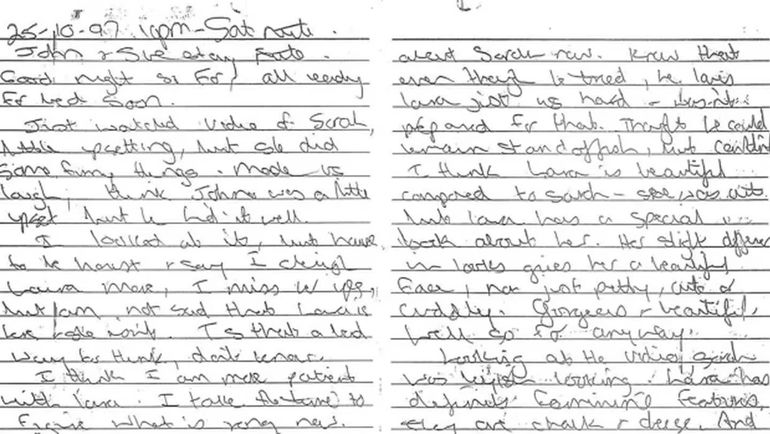 25-10-97 10pm - Sat nite.
John & Sue stay
Good night so far, all ready
for bed soon.
Just watched video of Sarah,
little upsetting, but she did
some funny things. Made us
laugh, think John was a little
upset but he hid it well.
I looked at it, but have
to be honest & say I
Laura more, I miss
but I am not sad that Laura is
here Is that a bad
way to think, don't know.
I think I am more patient
with Laura. I take the time to
figure what is wrong now.
about Sarah now. Knew that
even though he tried, he loves
Laura just as hard - wasn't
prepared for that. Thought he could
remain standoffish, but couldn't
I think Laura is beautiful
compared to Sarah - she was cute
but Laura has a special
look about her. Her slight difference
in looks gives her a beautiful
face, not just pretty, cute or
cuddly. Gorgeous & beautiful,
well so far anyway.
Looking at the video Sarah
was looking. Laura has
definite feminine features,
they are chalk & cheese. And